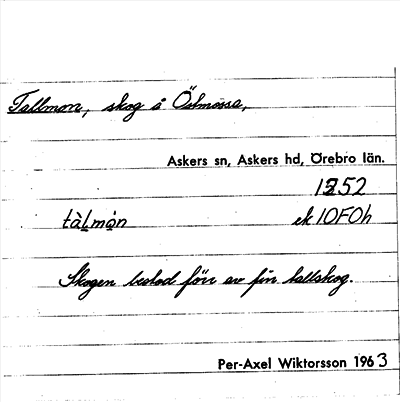 Tallmon, skog å Östmossa,
Askers sn, Askers hd, Örebro län.
1352
tàl̲mo̲n ek 10F0h
Skogen bestod förr av fin tallskog.
Per-Axel Wiktorsson 1963